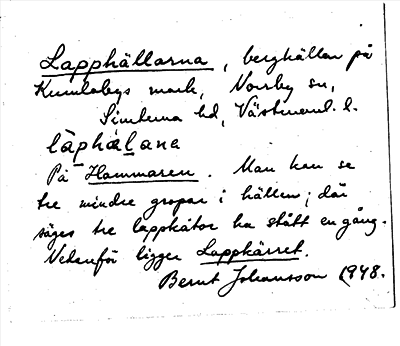 Lapphällarna, berghällar på
Kumlabys mark, Norrby sn,
Simtuna hd, Västmanl. l.
làphæ̀lana
På Hammaren. Man kan se
tre mindre gropar i hällen; där
säges tre lappkåtor ha stått en gång.
Nedanför ligger Lappkärret.
Bernt Johansson 1948.